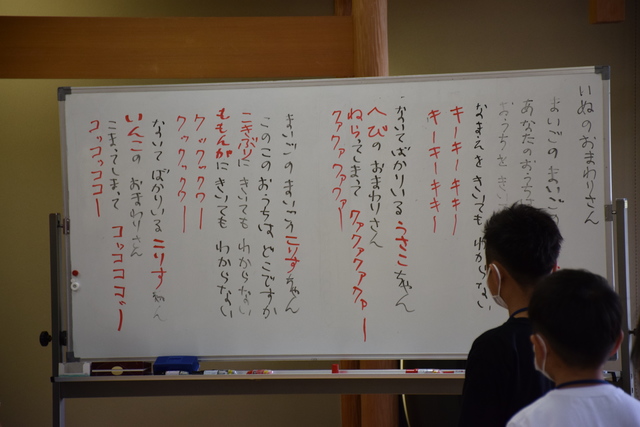 いぬのおまわりさん
まいごのまいご
あなたのおうち
おうちを きい
なまえをきいても わからない
キーキー キキー
キーキー キキー
ないてばかりいる うさこちゃん
へびの おまわりさん
ねらってしまって クァクァクァクァー
クァクァクァクァー
まいごのまいごのこりすちゃん
このこのおうちは どこですか
こきぶりにきいても わからない
ももんがにきいても わからない
クックックゥー
クックックゥー
ないてばかりいる こりすちゃん
いんこの おまわりさん
こまってしまって コッコココー
コッコッココー